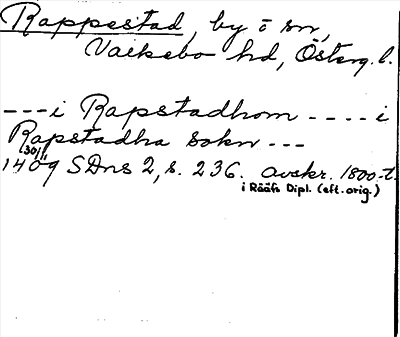 Rappestad, by o sn,
Valkebo hd, Österg.l.
---i Rapstadhom ---- i
Rapstadha sokn ---
30/11
1409 SDns 2, s. 236. avskr. 1800-t.
i Rääfs Dipl. (eft. orig.)